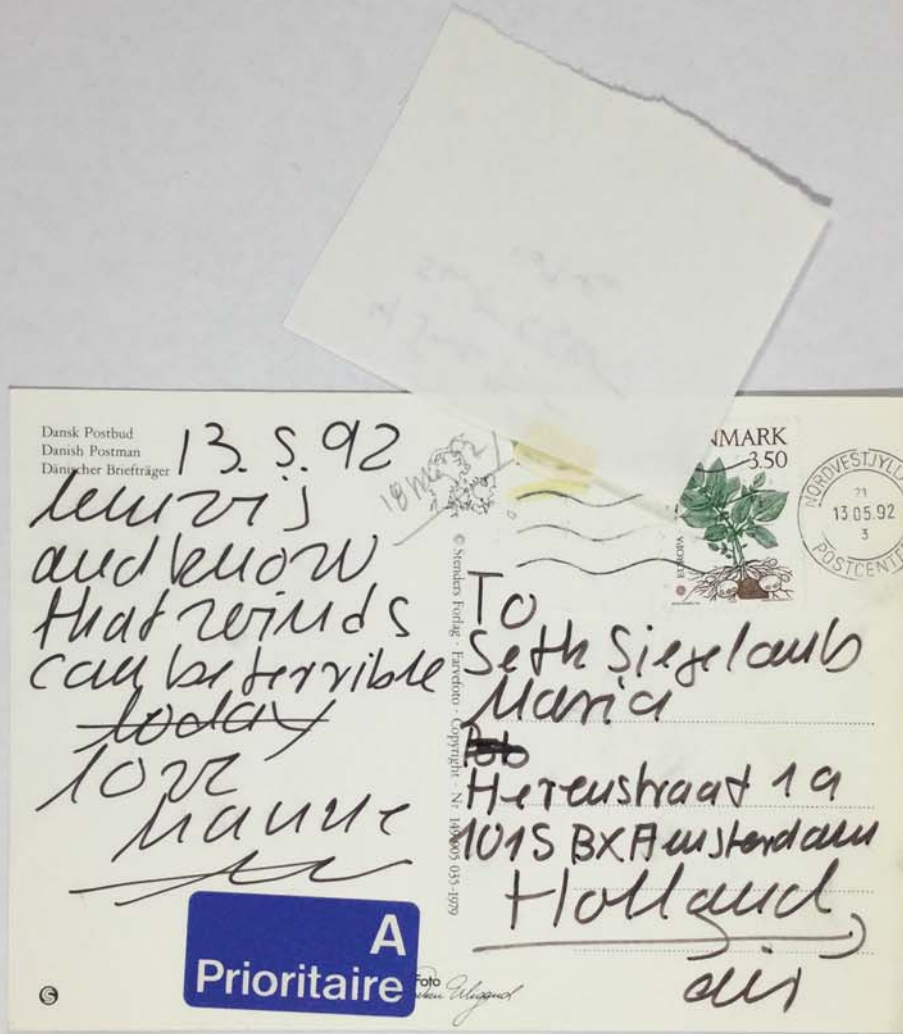 Dansk Postbud
Danish Postman
Dänischer Briefträger
13. 5. 92
Lemvig
and know
that winds
can be terrible
today
love
18 May 92
© Stenders Forlag - Farvefoto - Copyright - Nr.
035-1979
NMARK
3.50
EUROPA
NORDVESTJYLL
21
13 05.92
3
POSTCENTE
To
Seth Siegelaub
Maria
Herenstraat 1 a
1015 BX Amsterdam
Holland
air
A
Prioritaire
Foto
S